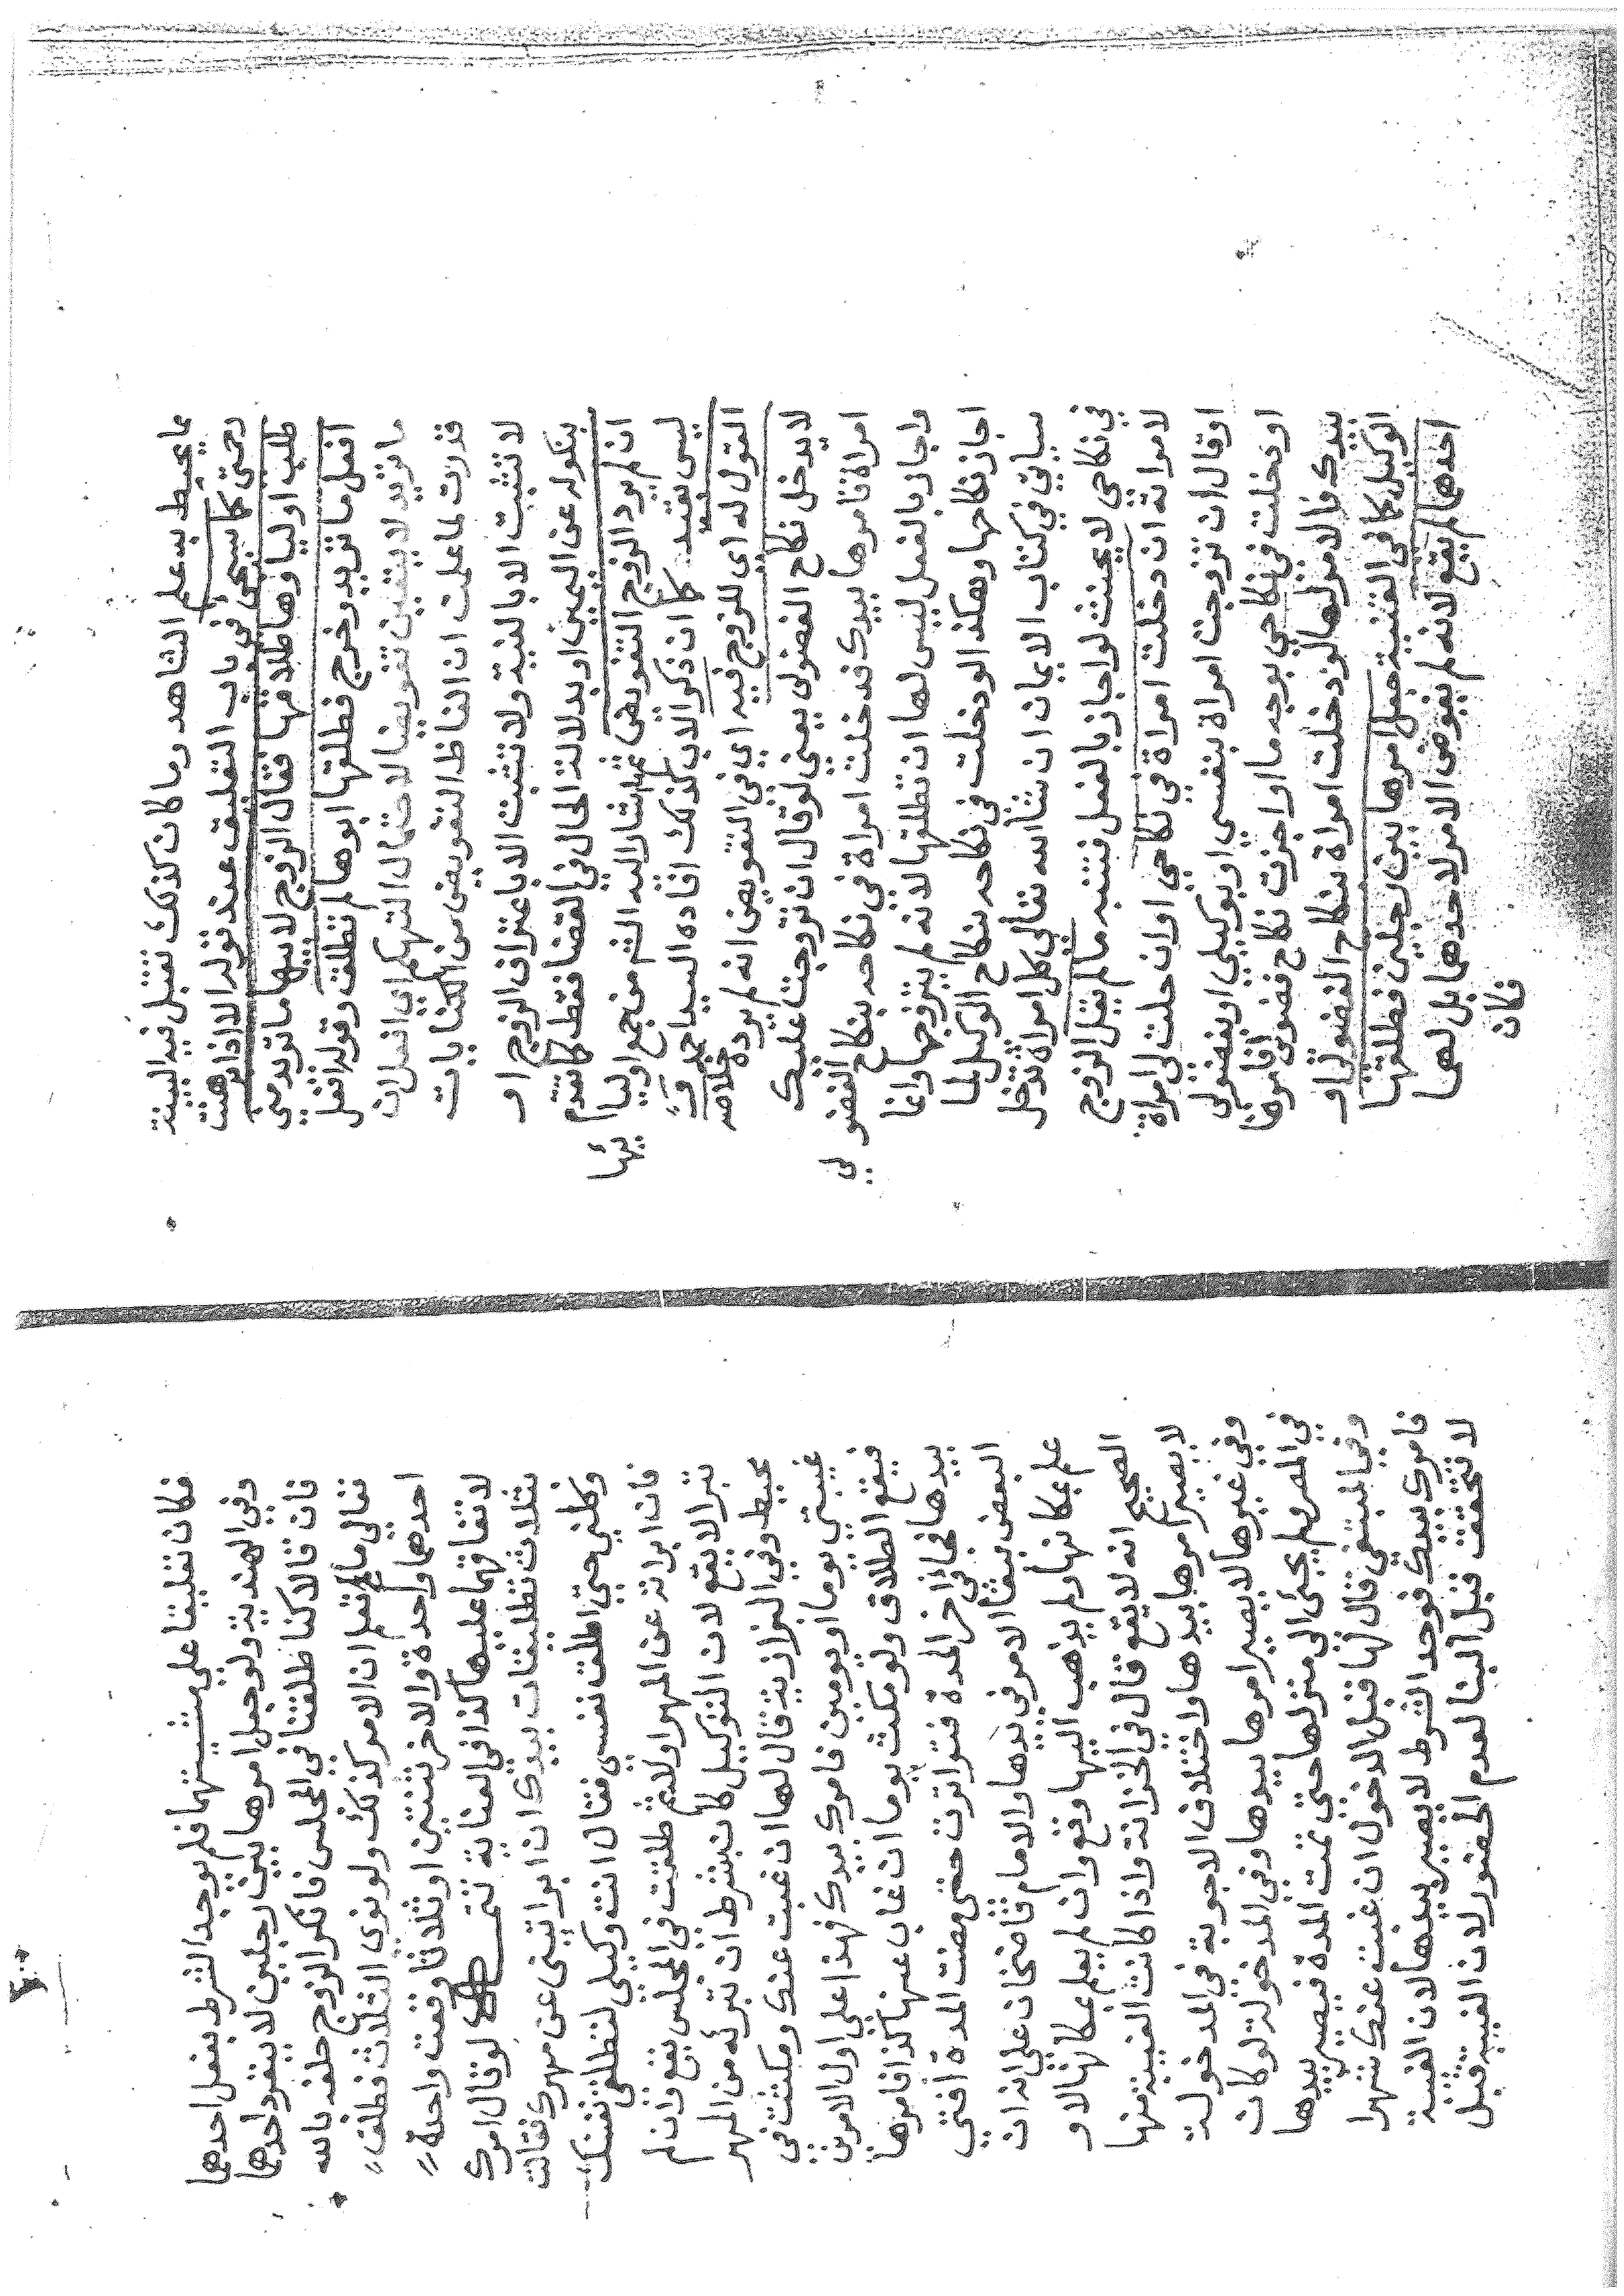 مما يحيط به علم الشاهد وما كان كذلك تقبل فيه البينة
وحتى كما سيجي في باب التعليق عند قوله الا اذا برهنت
طلب اوليا وها طلاقها فقال الزوج لابيها ما تريد مني
افعل ما تريد وخرج فطلقها ابوها لم تطلق وقوله افعل
ما تريد لا يتعين تفويضا لاحتمال التهكم اي افعل ان
قدرت لما علمت ان الفاظ التفويض من الكنايات
لا تثبت الا بالنية ولا تثبت الا باعتراف الزوج او
بنكوله عن اليمين او بدلالة الحال في القضا فقط كما تقدم
ان لم يرد الزوج التفويض ثم اشار اليه الش من جمع اوليا ئها
ليس بقيد كما ان ذكر الاب كذلك افاده السيد احمد
القول له اي للزوج فيه اي في التفويض انه لم يرده خلاصه
لا يدخل نكاح الفضولي يعني لو قال ان تزوجت عليك
امراة فامرها بيدك فدخلت امراة في نكاحه بنكاح الفضولي
واجاز بالفعل ليس لها ان تطلقها لانه لم يتزوجها وانما
اجاز نكاحها وهكذا لو دخلت في نكاحه بنكاح الوكيل لما
سياتي في كتاب الايمان ان شا الله تعالى كل امراة تدخل
في نكاحي لا يحنث لو اجاز بالفعل فتنبه ما لم يقل الزوج
لامراته ان دخلت امراة في نكاحي او ان حلت لي امراة
او قال ان تزوجت امراة بنفسي او بوكيلي او بفضولي
او دخلت في نكاحي بوجه ما او اجزت نكاح فضولي فامرها
بيدك فالامر لها لو دخلت امراة بنكاح الفضولي او
الوكيل كما في القنية جعل امرها بين رجلين فطلقها
احدهما لم يقع لانه لم يفوض الامر لاحدهما بل لهما
فكان
فكان تعليقا على مشيتهما فلم يوجد الشرط بفعل احدهما
وفي الهندية ولو جعل امرها بين رجلين لا ينفرد احدهما
فان قالا كنا طلقنا في المجلس فانكر الزوج حلف بالله
تعالى ما تعلم ان الامر كذلك ولو نوى الثلاث فطلق
احدهما واحدة والاخر ثنتين او ثلاثا وقعت واحدة
لاتفاقهما عليها كذا في العتابية لو قال امرك
بثلاث تطليقات بيدك ان ابراتيني عن مهرك فقالت
وكلني حتى اطلق نفسي فقال انت وكيلي لتطلقي نفسك
فان ابراته عن المهر اولا ثم طلقت في المجلس يقع وان لم
تبر الا يقع لان التوكيل كان بشرط ان تبرئه من المهر
محيط وفي البزازية قال لها ان غبت عنك ومكثت في
غيبتي يوما او يومين فامرك بيدك فهذا على اول الامرين
فيقع الطلاق ولو مكث يوما ان غاب عنها كذا فامرها
بيدها فجا في اخر المدة فتوارت حتى مضت المدة افتى
البعض ببقا الامر في يدها والامام قاضخان على انه ان
علم بمكانها ولم يذهب اليها وقع وان لم يعلم بمكانها لا و
الصحيح انه لا يقع قال في الخزانة واذا كانت الغيبة منها
لا يصير امرها بيدها واختلاف الاجوبة في المدخولة
وفي غيرها لا يصير امرها بيدها وفي المدخولة لو كان
في المصر ولم يجئ الى منزلها حتى تمت المدة فيصير بيدها
وفي المبتغى قال لها قبل الدخول ان غبت عنك شهرا
فامرك بيدك فوجد الشرط لا يصير بيدها لان الغيبة
لا تتحقق قبل البنا لعدم الحضور لان الغيبة قبل